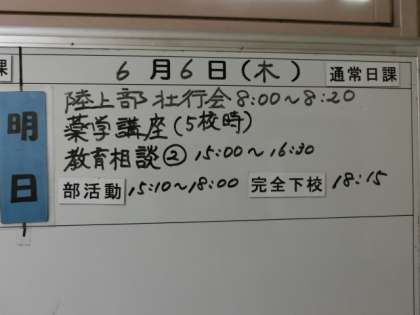 課
6月6日(木) 通常日課
明日
陸上部 壮行会 8:00~8:20
薬学講座(5校時)
教育相談② 15:00~16:30
部活動 15:10~18:00 完全下校 18:15